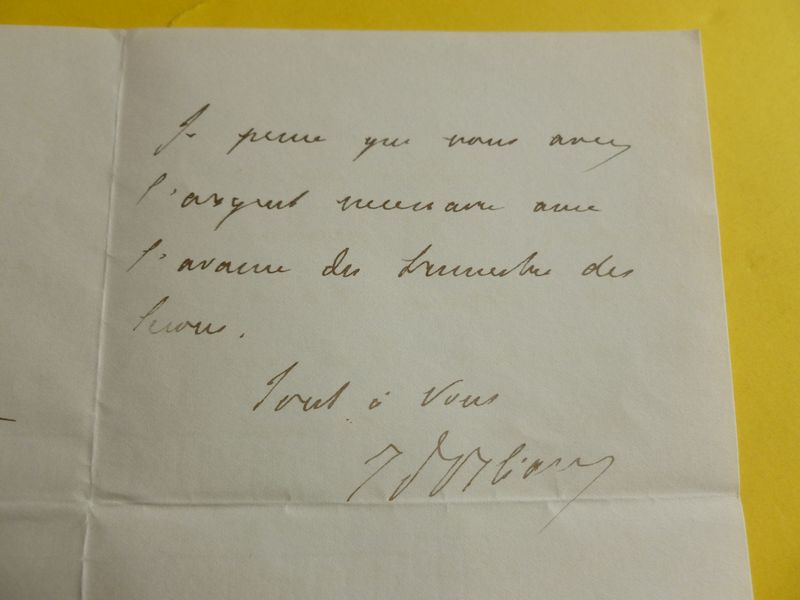 Je pense que vous avez
l'argent necessaire avec
l'avance du trimestre des
lecons.
Tout à Vous